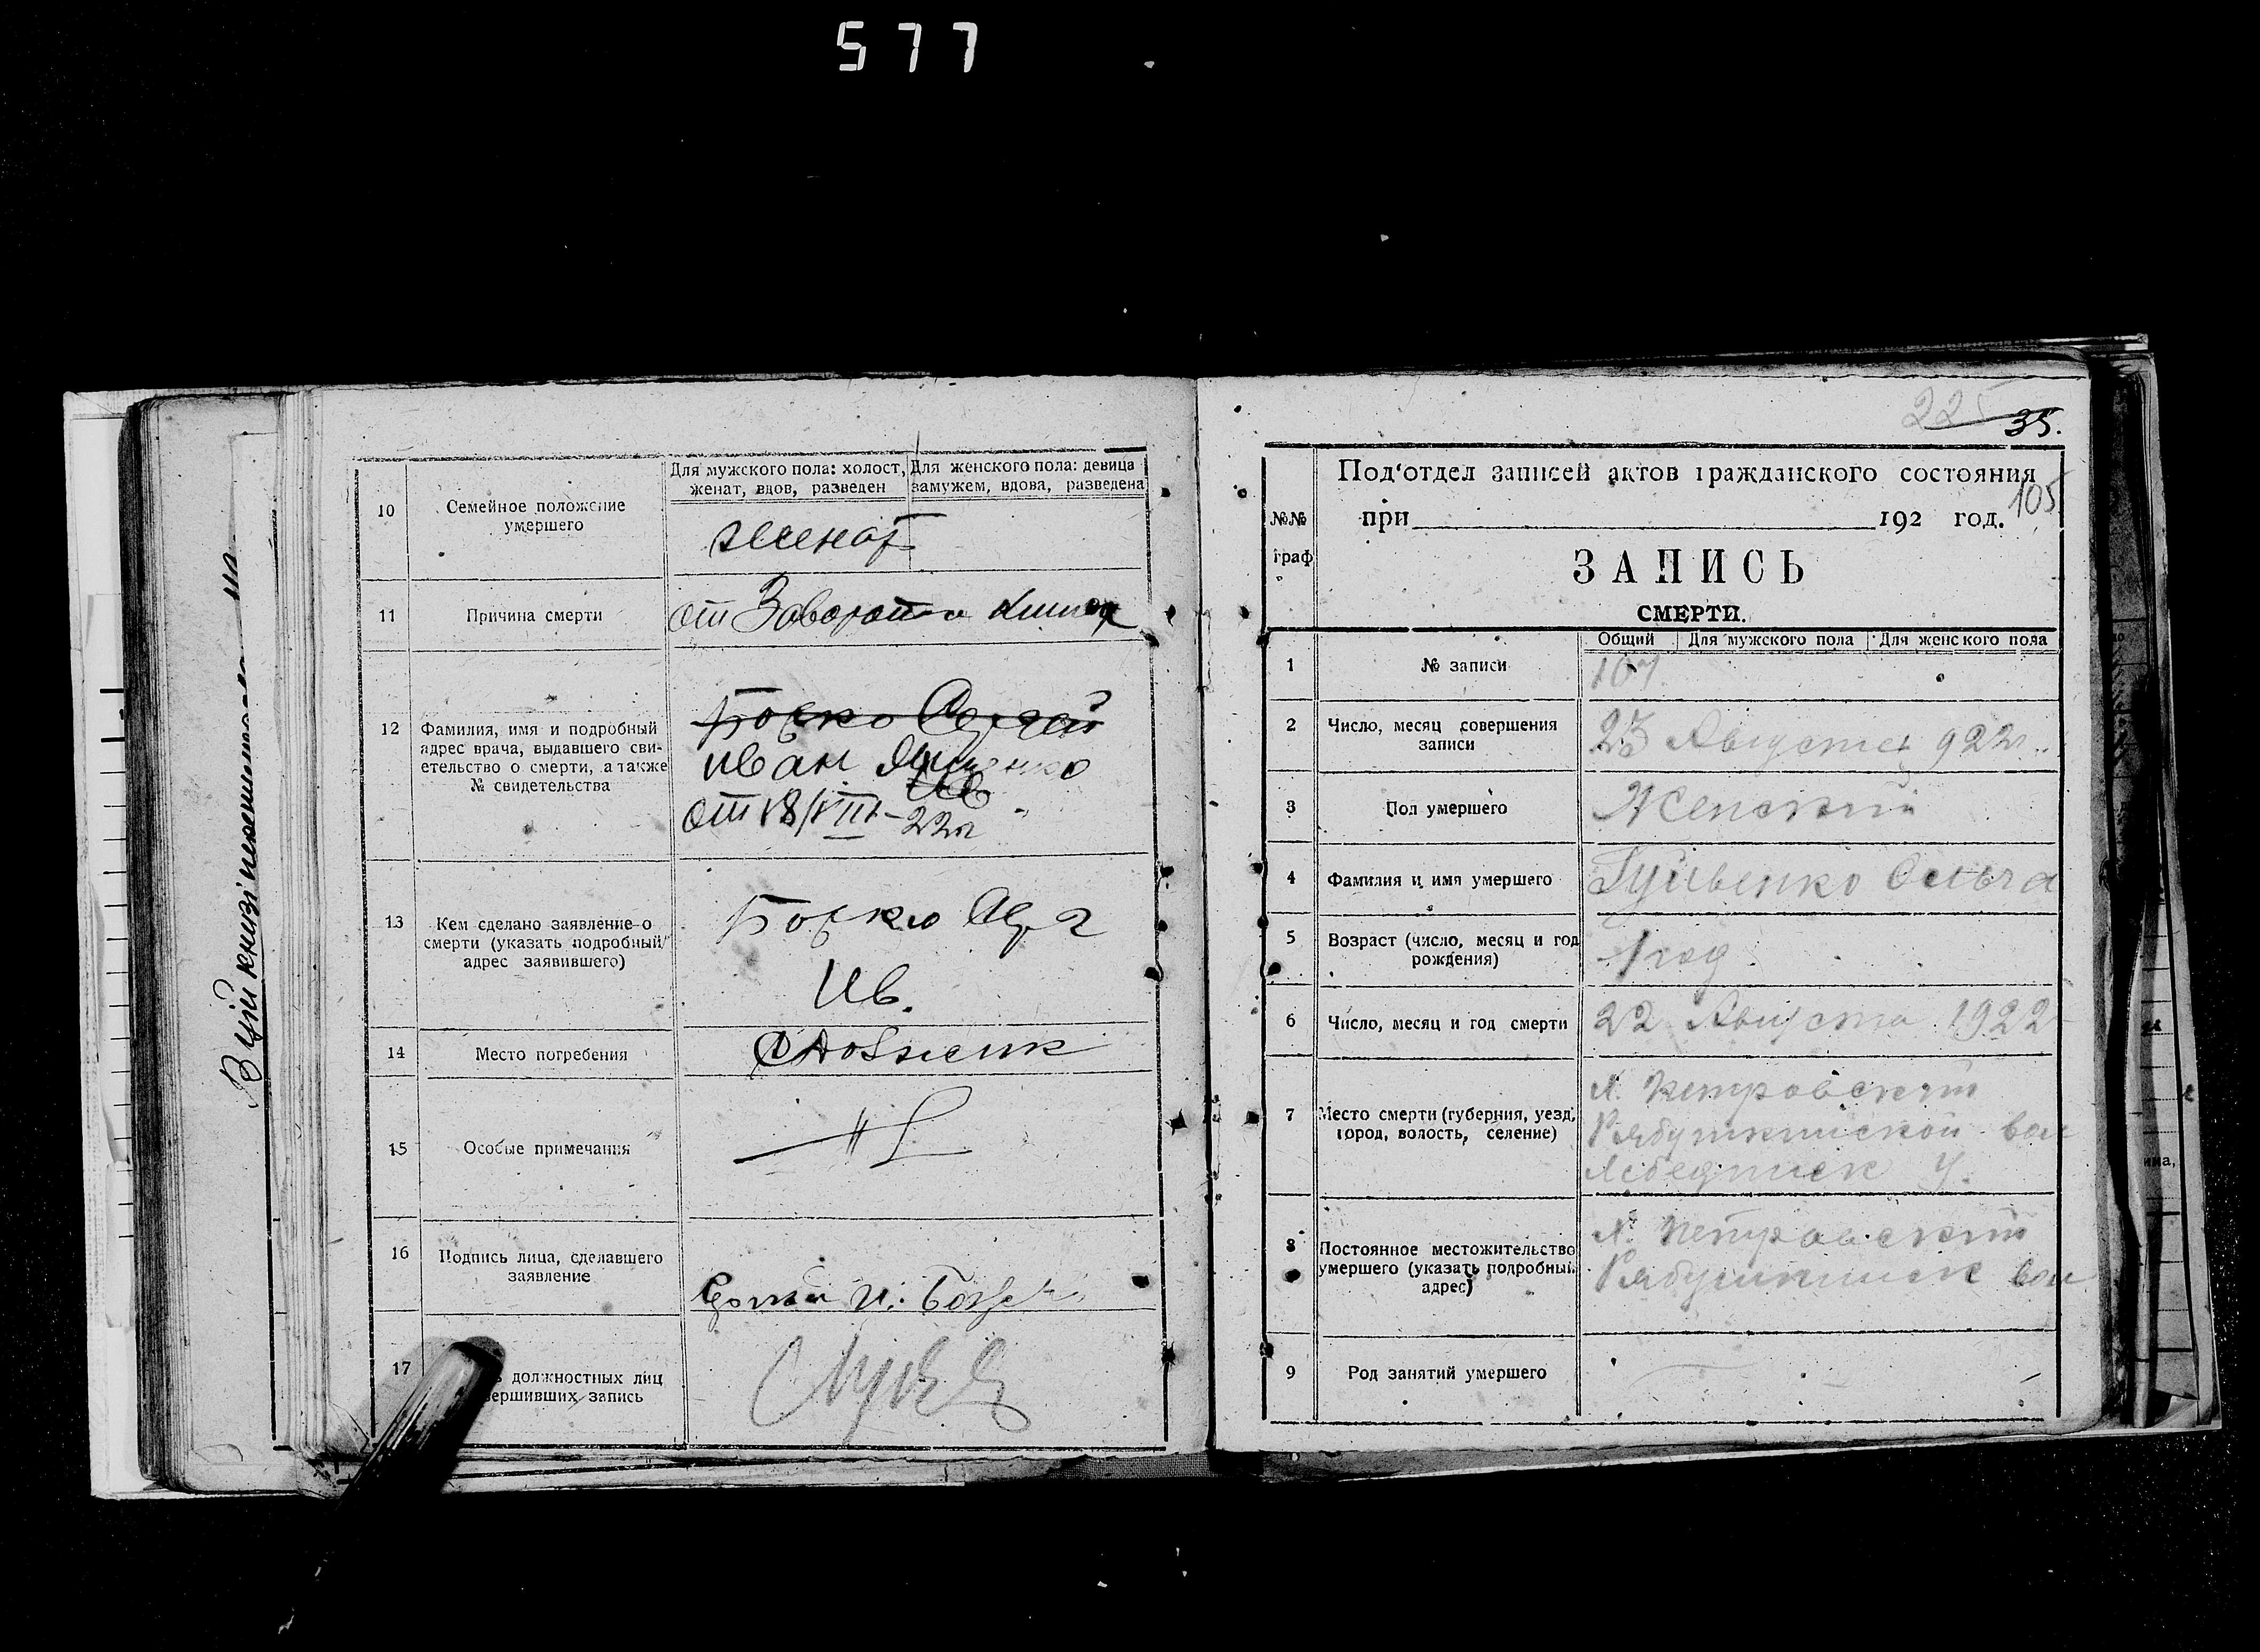 577
В цій книзі
10
Семейное положение
умершего
Для мужского пола: холост,
женат, вдов, разведен
Для женского пола: девица
замужем, вдова, разведена
женат
11
Причина смерти
от Заворота кишок
12
Фамилия, имя и подробный
адрес врача, выдавшего сви-
етельство о смерти, а также
№ свидетельства
Иван
от 18/VIII-22г
13
Кем сделано заявление о
смерти (указать подробный
адрес заявившего)
Ив.
14
Место погребения
15
Особые примечания
16
Подпись лица, сделавшего
заявление
17
должностных лиц
вершивших запись
225
35.
105
№№
граф
Под'отдел записей актов гражданского состояния
при 192 год.
ЗАПИСЬ
СМЕРТИ.
Общий
Для мужского пола
Для женского пола
1
№ записи
107
2
Число, месяц совершения
записи
23 Августа 922г.
3
Пол умершего
Женский
4
Фамилия и имя умершего
Ольга
5
Возраст (число, месяц и год
рождения)
1 год
6
Число, месяц и год смерти
22 Августа 1922
7
Место смерти (губерния, уезд,
город, волость, селение)
Х. Петровский
Рябушкинской вол
Лебединск У.
8
Постоянное местожительство
умершего (указать подробный
адрес)
Х. Петровский
Рябушкинск вол
9
Род занятий умершего